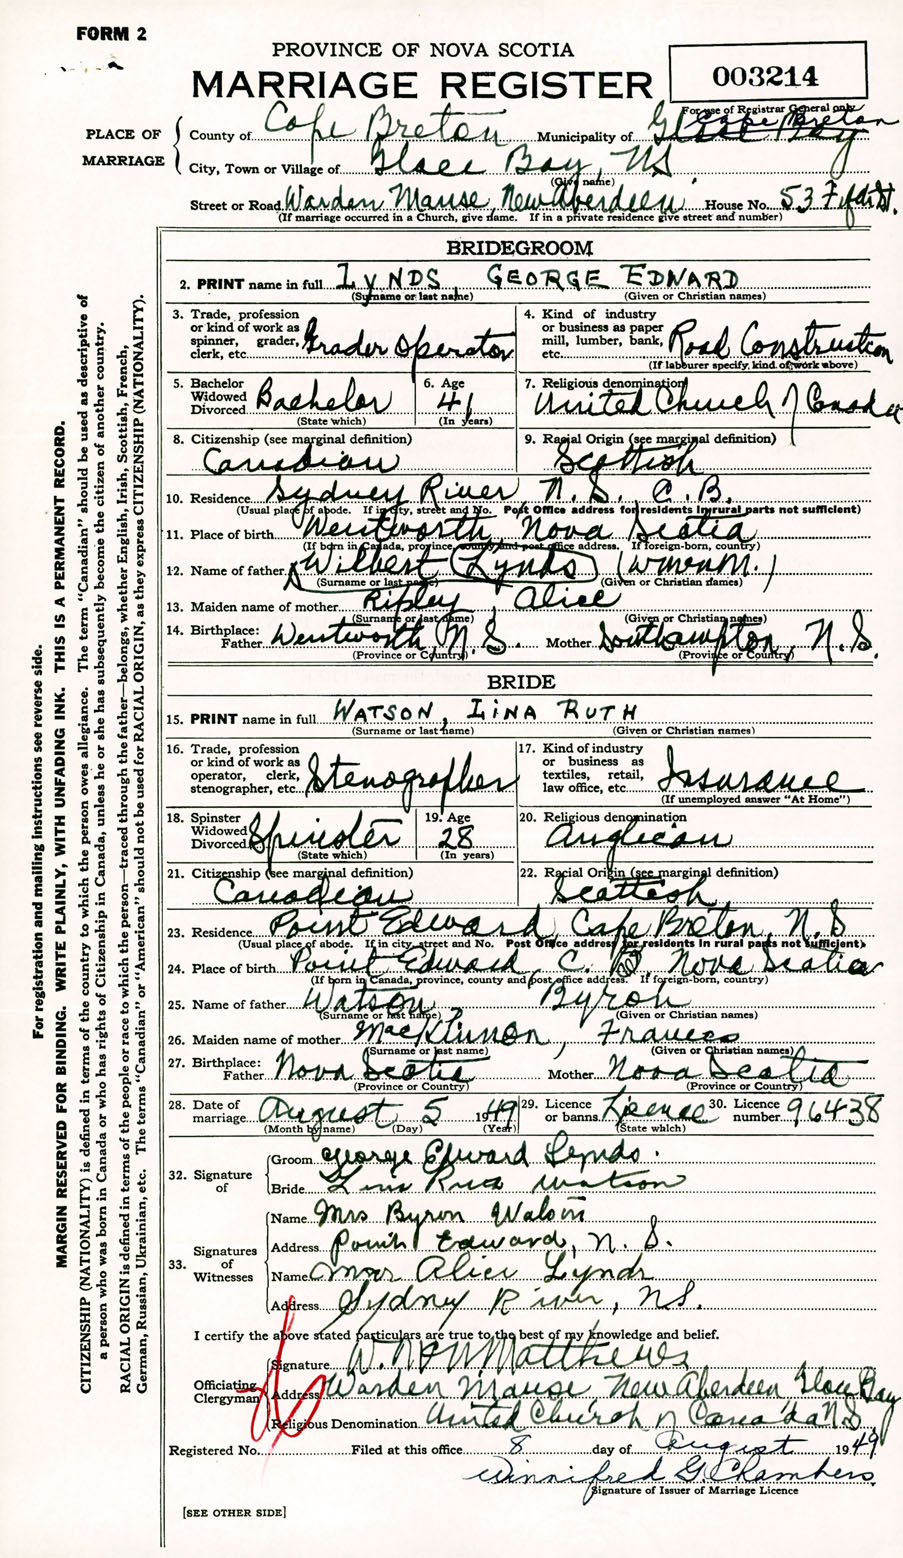 FORM 2
PROVINCE OF NOVA SCOTIA
MARRIAGE REGISTER
003214
For use of Registrar General only
PLACE OF MARRIAGE
County of Cape Breton Municipality of Glace Bay Cape Breton
City, Town or Village of Glace Bay, NS.
(Give name)
Street or Road Warden Manse, New Aberdeen House No. 53 Fifth St.
(If marriage occurred in a Church, give name. If in a private residence give street and number)
BRIDEGROOM
2. PRINT name in full LYNDS, GEORGE EDWARD
(Surname or last name) (Given or Christian names)
3. Trade, profession or kind of work as spinner, grader, clerk, etc. Grader Operator
4. Kind of industry or business as paper mill, lumber, bank, etc. Road Construction
(If labourer specify, kind of work above)
5. Bachelor Widowed Divorced Bachelor
(State which)
6. Age 41
(In years)
7. Religious denomination United Church of Canada
8. Citizenship (see marginal definition) Canadian
9. Racial Origin (see marginal definition) Scottish
10. Residence Sydney River, N.S., C.B.
(Usual place of abode. If in city, street and No. Post Office address for residents in rural parts not sufficient)
11. Place of birth Wentworth, Nova Scotia
(If born in Canada, province, county and post office address. If foreign-born, country)
12. Name of father Wilbert (Lynds)
(Surname or last name) (Given or Christian names)
13. Maiden name of mother Ripley, Alice
(Surname or last name) (Given or Christian names)
14. Birthplace: Father Wentworth, N.S. Mother Southampton, N.S.
(Province or Country) (Province or Country)
BRIDE
15. PRINT name in full WATSON, LINA RUTH
(Surname or last name) (Given or Christian names)
16. Trade, profession or kind of work as operator, clerk, stenographer, etc. Stenographer
17. Kind of industry or business as textiles, retail, law office, etc. Insurance
(If unemployed answer "At Home")
18. Spinster Widowed Divorced Spinster
(State which)
19. Age 28
(In years)
20. Religious denomination Anglican
21. Citizenship (see marginal definition) Canadian
22. Racial Origin (see marginal definition) Scottish
23. Residence Point Edward, Cape Breton, N.S
(Usual place of abode. If in city, street and No. Post Office address for residents in rural parts not sufficient)
24. Place of birth Point Edward, C. B, Nova Scotia
(If born in Canada, province, county and post office address. If foreign-born, country)
25. Name of father Watson, Byron
(Surname or last name) (Given or Christian names)
26. Maiden name of mother MacKinnon, Frances
(Surname or last name) (Given or Christian names)
27. Birthplace: Father Nova Scotia Mother Nova Scotia
(Province or Country) (Province or Country)
28. Date of marriage August 5 1949 29. Licence or banns. License 30. Licence number. 96438
(Month by name) (Day) (Year) (State which)
32. Signature of
Groom George Edward Lynds.
Bride Lina Ruth Watson
33. Signatures of Witnesses
Name Mrs Byron Watson
Address Point Edward, N. S.
Name Mrs Alice Lynds
Address Sydney River, NS.
I certify the above stated particulars are true to the best of my knowledge and belief.
Officiating Clergyman
Signature Matthews
Address Warden Manse, New Aberdeen Glace Bay
Religious Denomination United Church of Canada N.S
Registered No. Filed at this office 8 day of August 1949
Winnifred G. Chambers
Signature of Issuer of Marriage Licence
[SEE OTHER SIDE]
For registration and mailing instructions see reverse side.
MARGIN RESERVED FOR BINDING. WRITE PLAINLY, WITH UNFADING INK. THIS IS A PERMANENT RECORD.
CITIZENSHIP (NATIONALITY) is defined in terms of the country to which the person owes allegiance. The term "Canadian" should be used as descriptive of
a person who was born in Canada or who has rights of Citizenship in Canada, unless he or she has subsequently become the citizen of another country.
RACIAL ORIGIN is defined in terms of the people or race to which the person—traced through the father—belongs, whether English, Irish, Scottish, French,
German, Russian, Ukrainian, etc. The terms "Canadian" or "American" should not be used for RACIAL ORIGIN, as they express CITIZENSHIP (NATIONALITY).